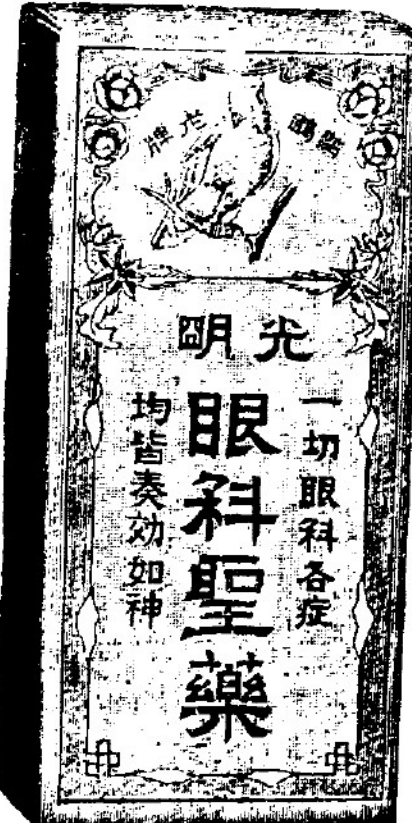 鸚鵡牌
光朙
一切眼科各症
眼科聖藥
均皆奏効如神